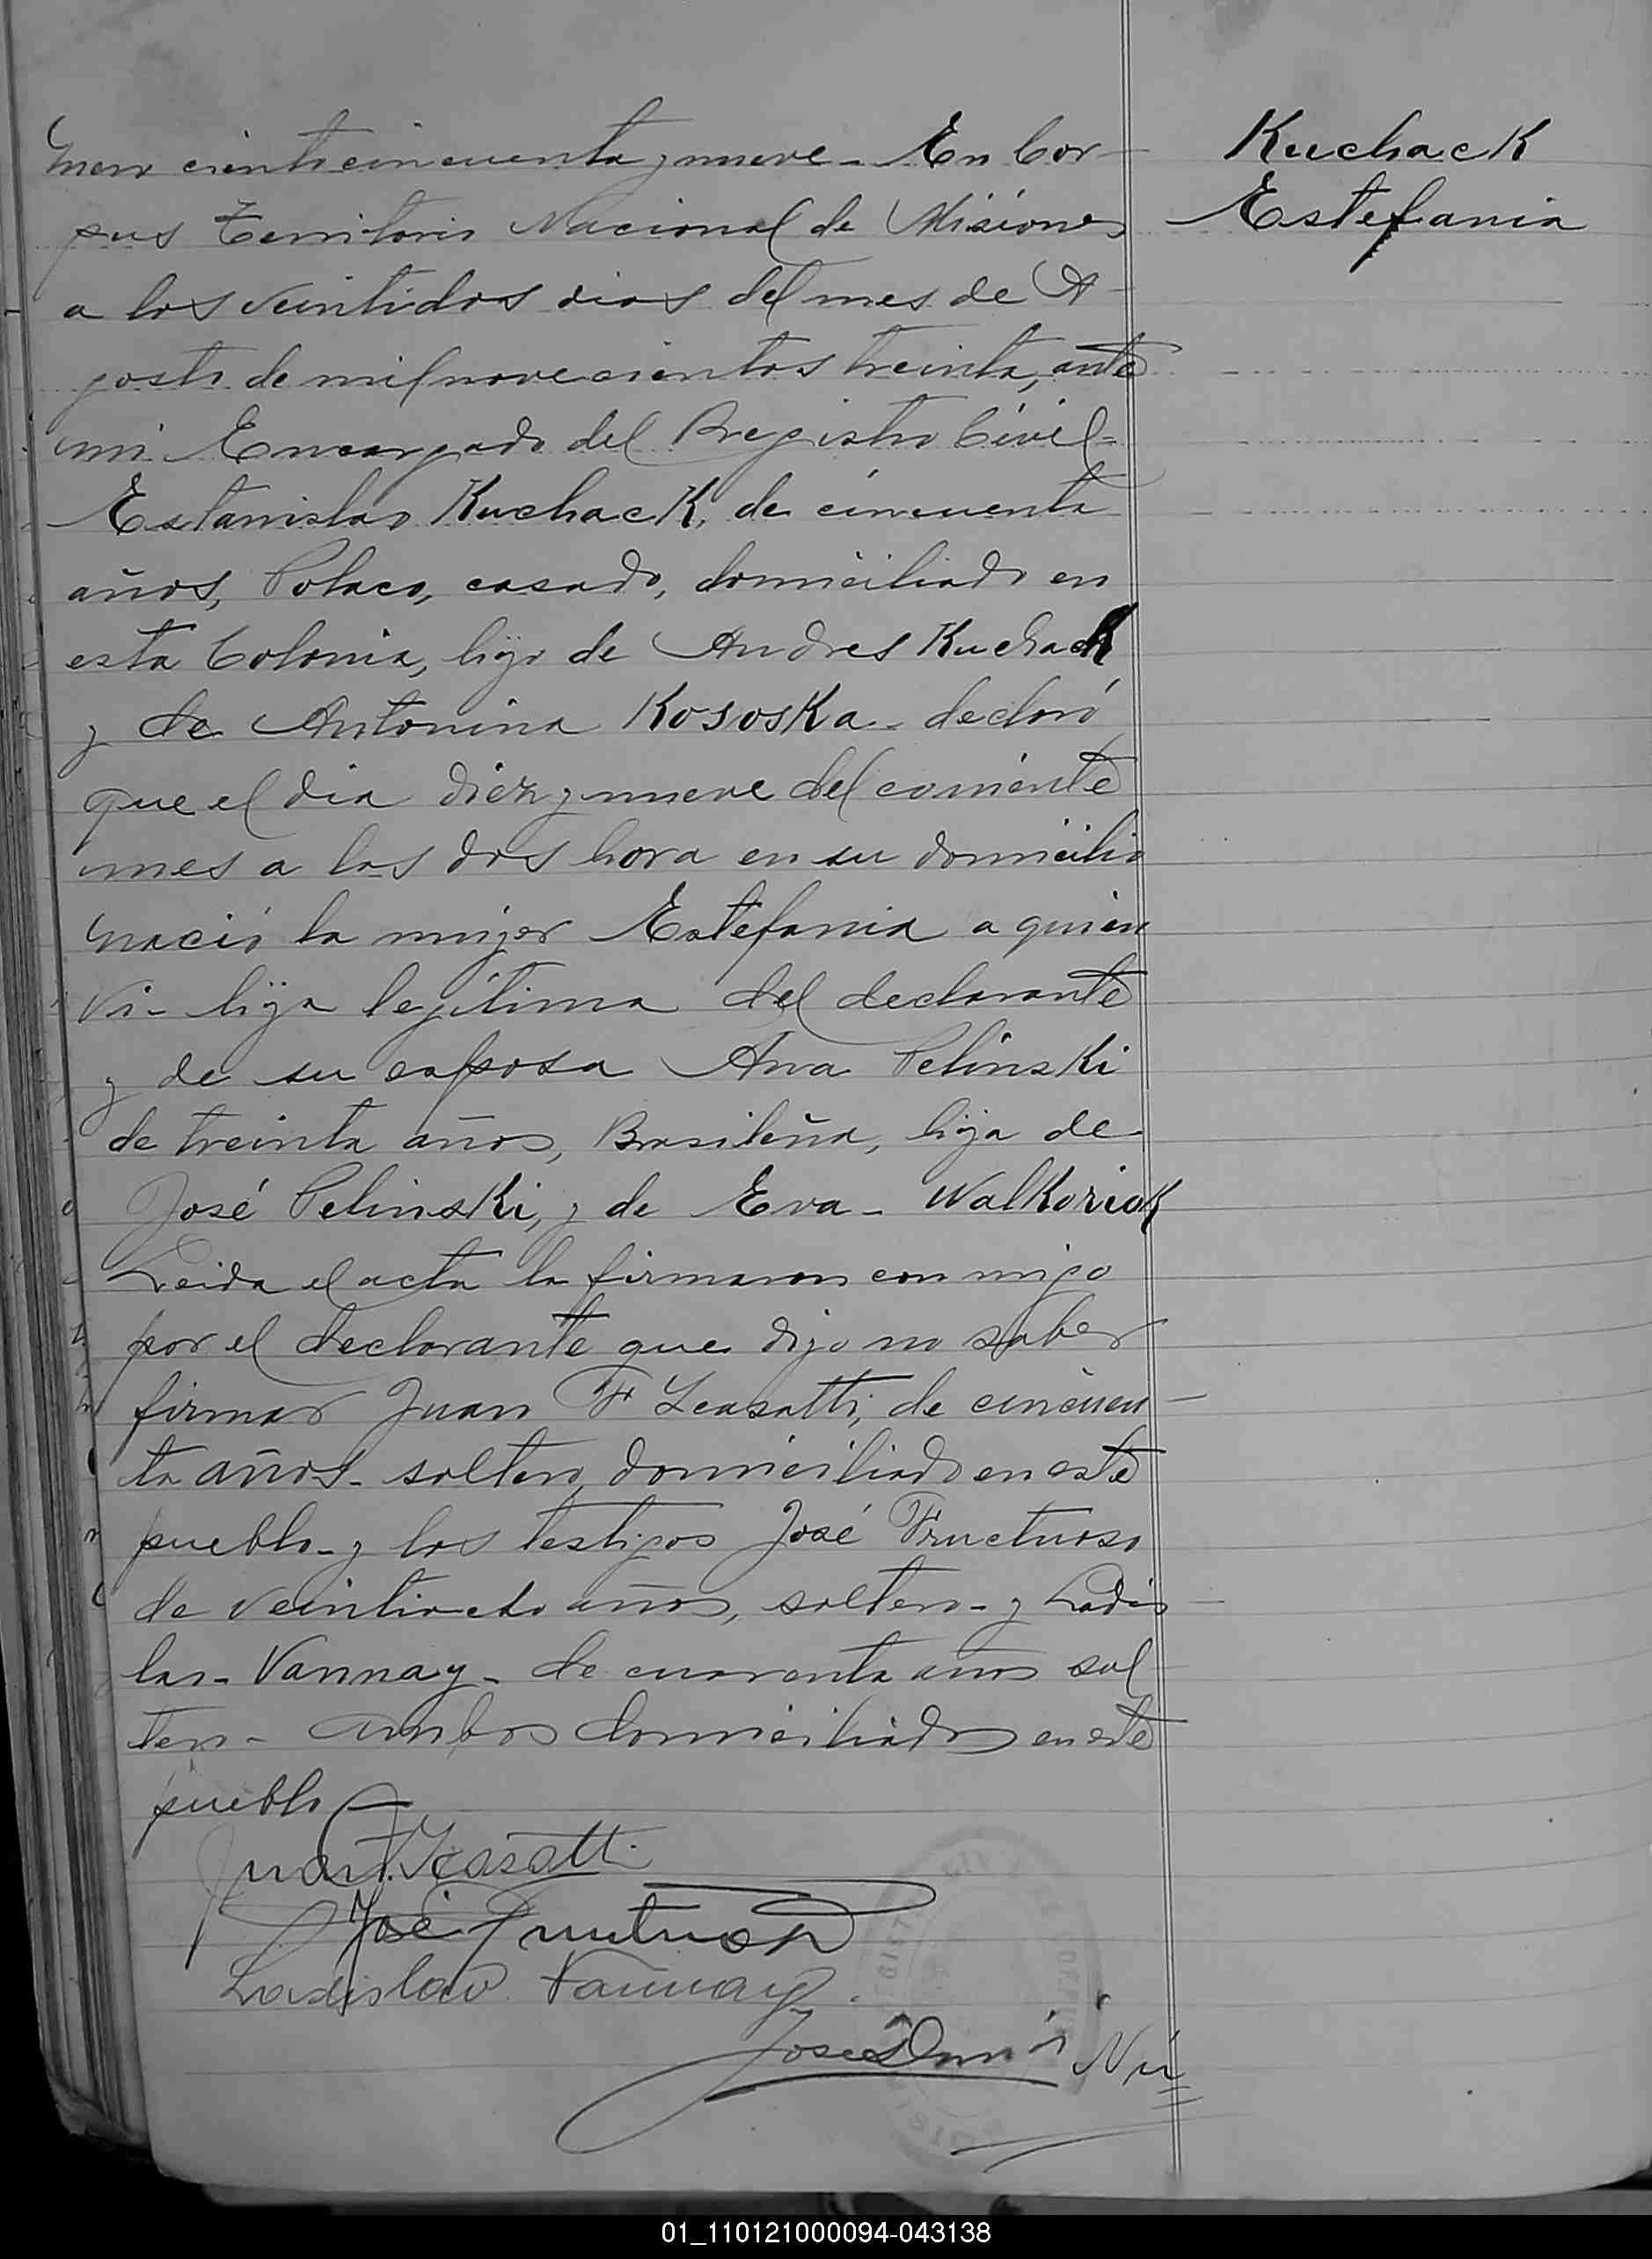 Kuchack
Estefania
cientocincuenta y nueve - En Cor-
pus Territorio Nacional de Misiones
a los veintidos dias del mes de A-
gosto de mil novecientos treinta, ante
mi Encargado del Registro Civil -
Estanislao Kuchack, de cincuenta
años, Polaco, casado, domiciliado en
esta Colonia, hijo de Andres Kuchack
y de Antonina Kososka - declaró
que el dia diez y nueve del corriente
mes a las dos hora en su domicilio
nació la mujer Estefania a quien
vi - hija legítima del declarante
y de su esposa Ana Pelinski
de treinta años, Brasileña, hija de
José Pelinski, y de Eva - Walkoriok
Leida el acta la firmaron con migo
por el declarante que dijo no saber
firmar Juan F de cincuen-
ta años - soltero, domiciliado en este
pueblo - y los testigos José Fructuoso
de veintiocho años, soltero - y Ladis-
lao - Vannay - de cuarenta años sol
tero - ambos domiciliados en este
pueblo
Juan F.
José Fructuoso
Ladislao Vannay
José
01_110121000094-043138